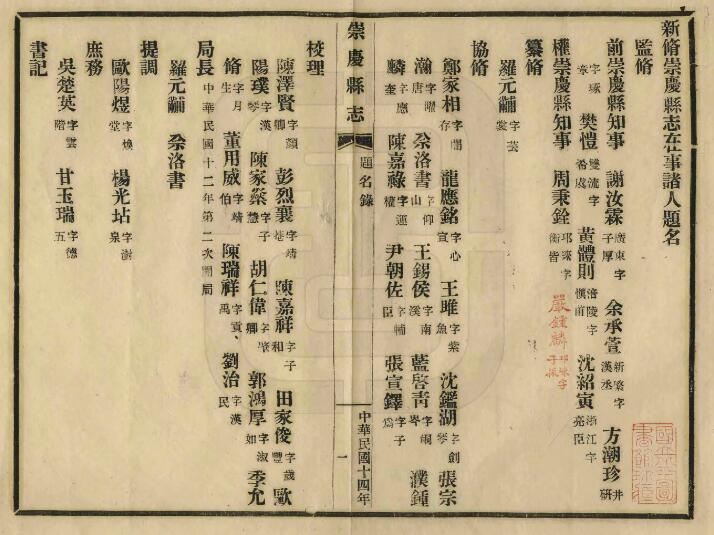 新脩崇慶縣志在事諸人題名
監脩
前崇慶縣知事 謝汝霖廣東字子厚 余承萱新寧字漢丞 方潮珍井研
字琢章 樊愷雙流字 黃體則涪陵字慎甫 沈紹寅浙江字亮臣
權崇慶縣知事 周秉銓邛崍字衡皆 嚴鍾麟
纂脩
羅元黼字芸裳
協脩
鄭家相字閣存 龍應銘字心宣 王雎字紫魚 沈鑑湖字劍琴 張宗
瀚字曙唐 余洛書字仰山 王錫侯字南溪 藍啓青字峒岑 濮鍾
麟字應奎 陳嘉祿字運權 尹朝佐字輔臣 張宣鐸字子為
崇慶縣志
題名錄
一
中華民國十四年
校理
陳澤賢字顏卿 彭烈襄字靖巷 陳嘉祥字子和 田家俊字歲豐 歐
陽璞字漢琴 陳家燊字子慧 胡仁偉字肇卿 郭鴻厚字淑如 季允
脩字月生 董用威字靖伯 陳瑞祥字貢禹 劉治字漢民
局長中華民國十二年第二次開局
羅元黼 余洛書
提調
歐陽煜字煥堂 楊光坫字澍泉
庶務
吳楚英字雲階 甘玉瑞字德五
書記